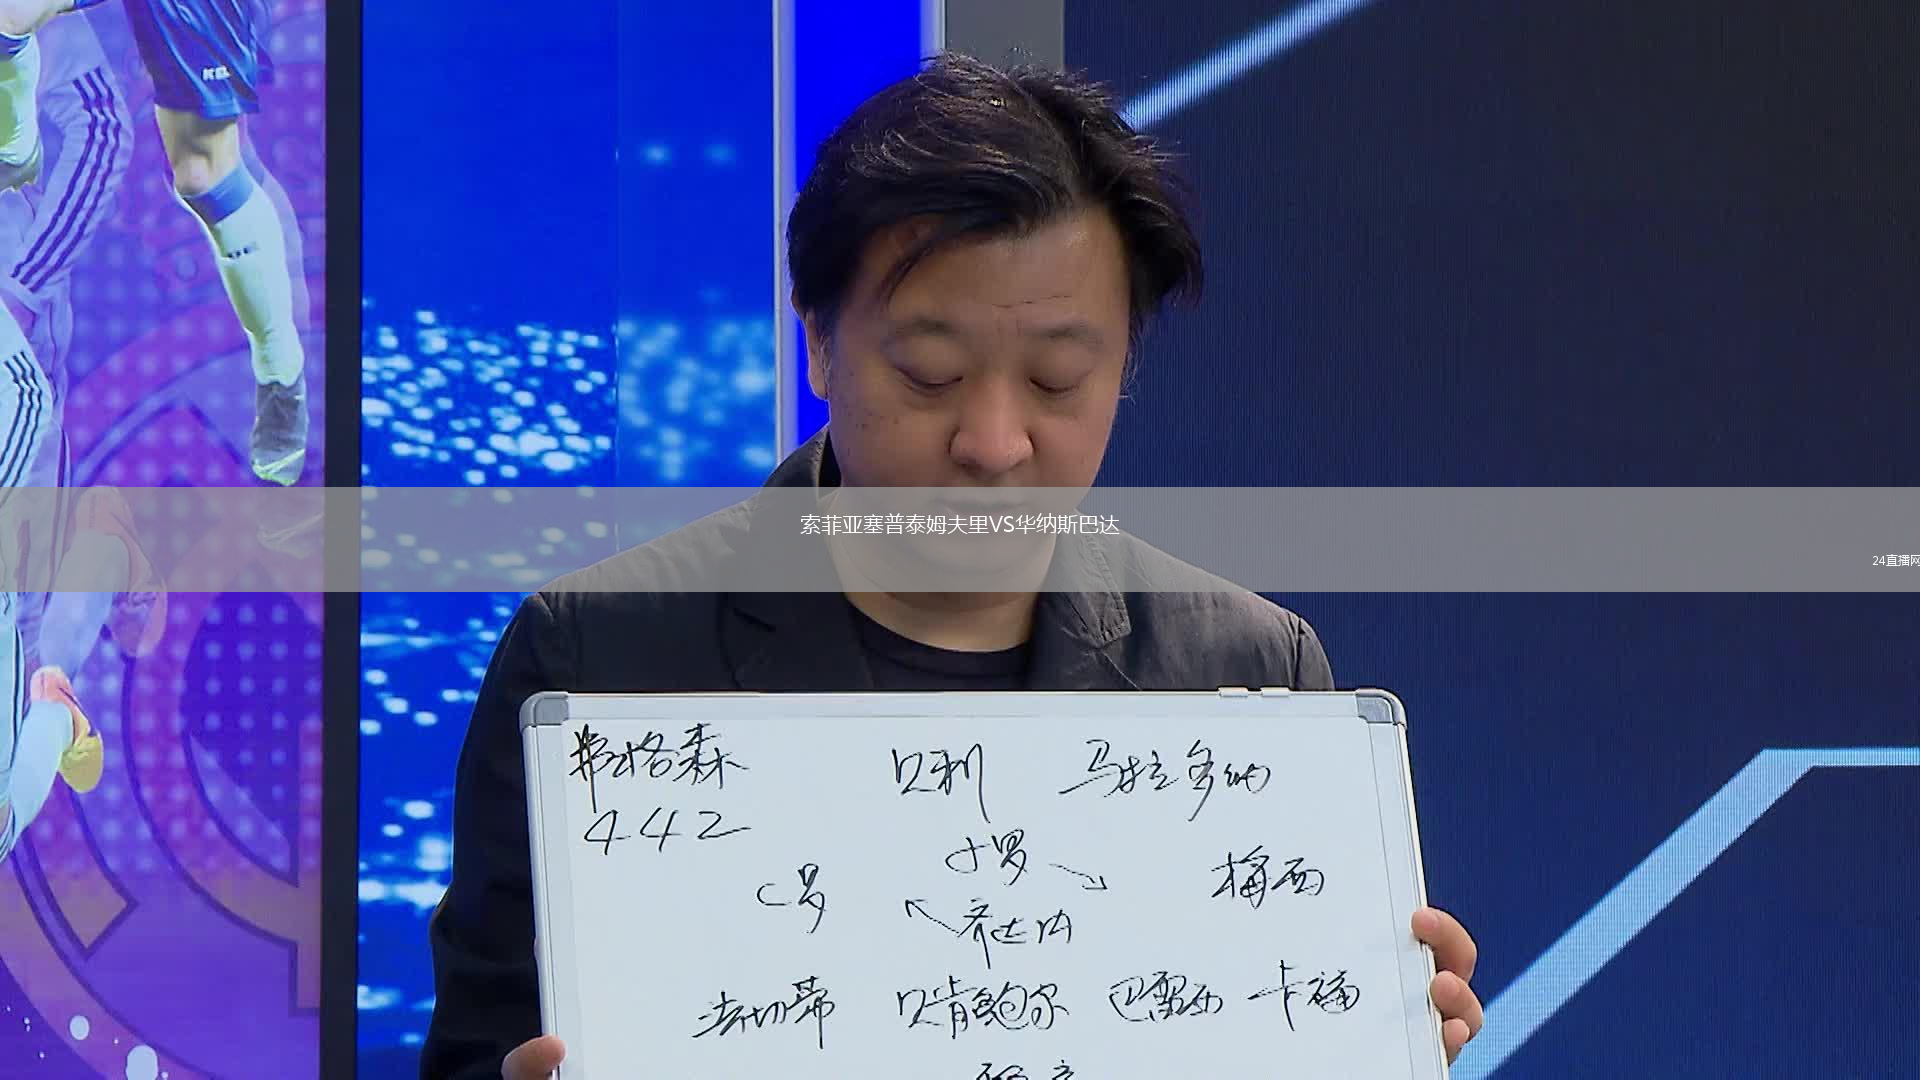 KEL
索菲亚塞普泰姆夫里VS华纳斯巴达
24直播网
弗格森 贝利 马拉多纳
442
小罗
C罗 梅西
齐达内
法切蒂 贝肯鲍尔 巴雷西 卡福